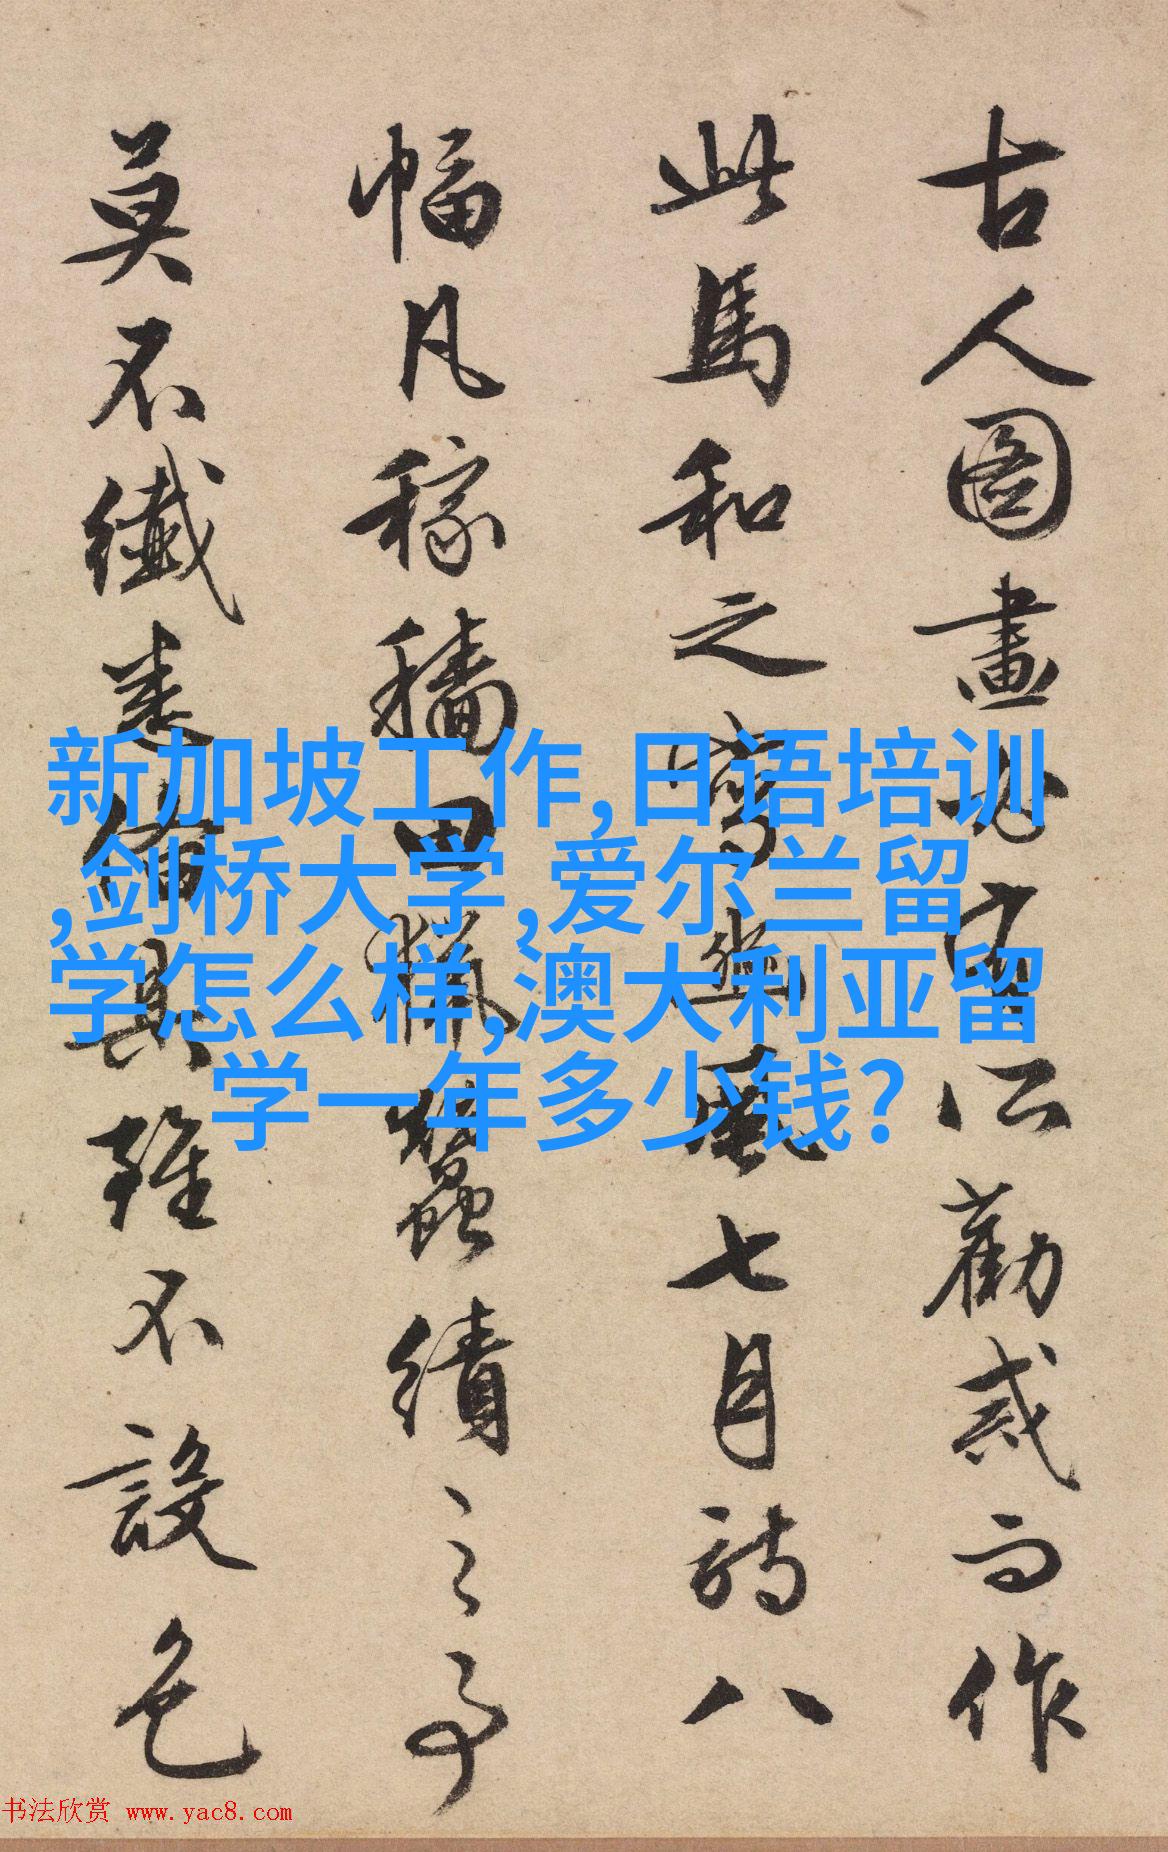 古人圖畫必有所勸戒而作
此馬和之寫豳風七月詩八
幅凡稼穡田獵蠶績之事
莫不纖悉備具雖不設色
新加坡工作,日语培训
,剑桥大学,爱尔兰留
学怎么样,澳大利亚留
学一年多少钱?
书法欣赏 www.yac8.com